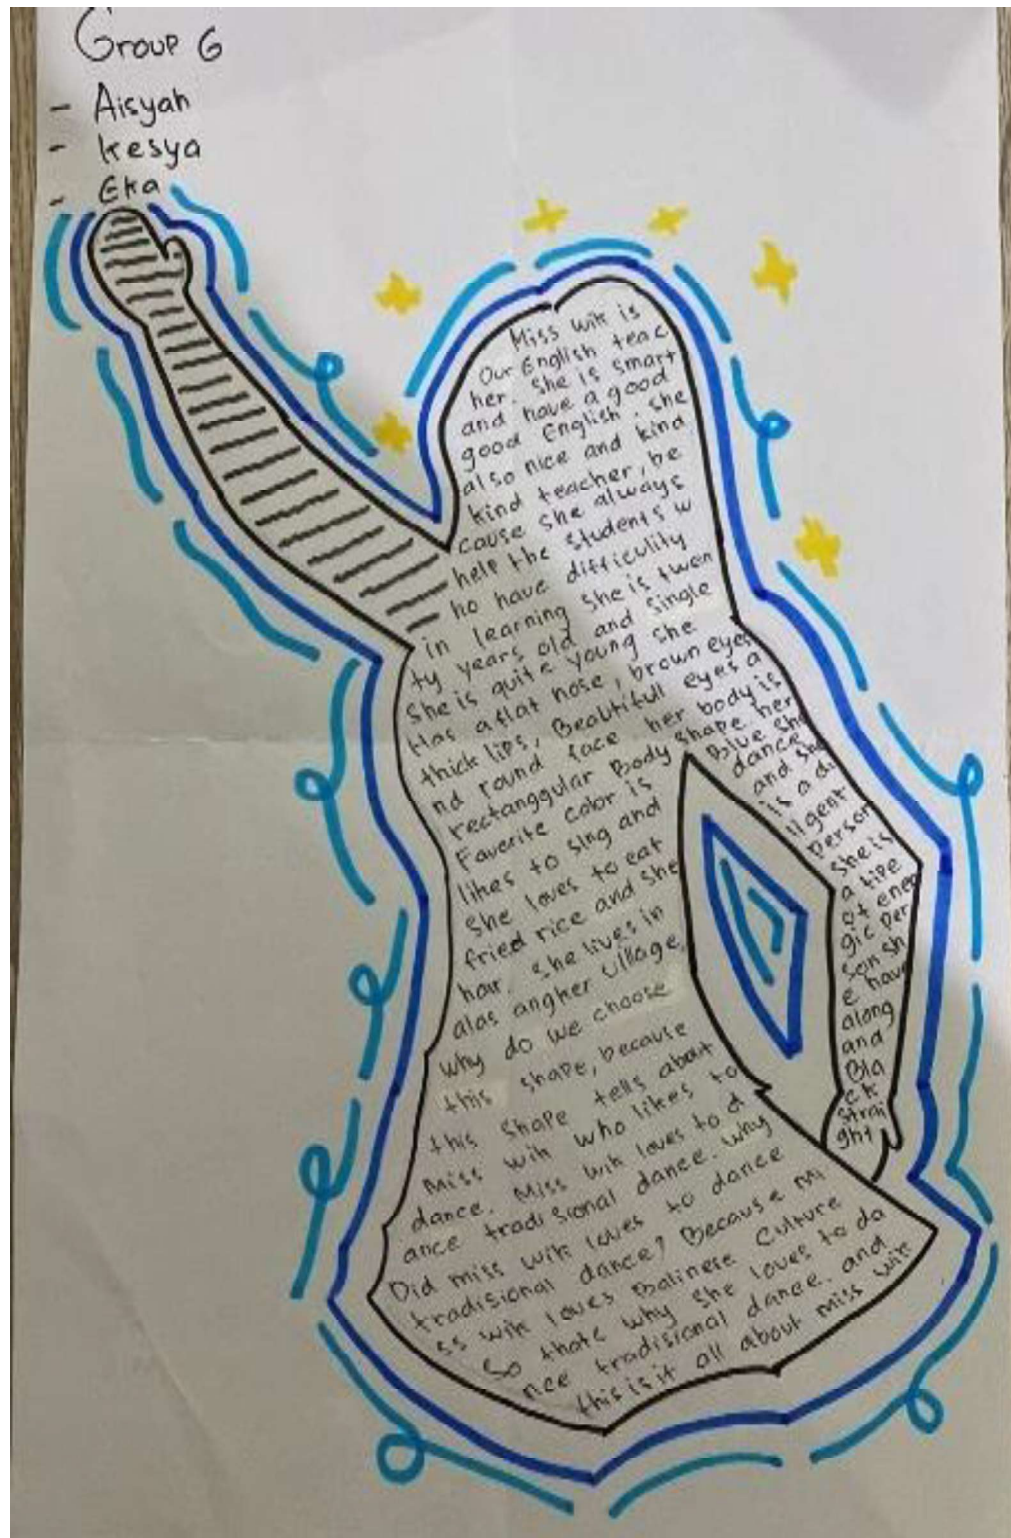 Group 6
- Aisyah
- Kesya
- Eka
Miss wik is
Our English teac
her. She is smart
and have a good
good English. she
also nice and kind
kind teacher, be
cause she always
help the students w
ho have difficulity
in learning she is twen
ty years old and single
she is quite young she
Has a flat nose, brown eyes
thick lips, Beautifull eyes a
nd round face her body is
rectanggular Body shape her
Faverite color is Blue she
likes to sing and dance
She loves to eat and she
fried rice and she is a di
har. she lives in
alas angker village,
why do we choose
this shape, because
this shape tells about
miss wik who likes to
dance. Miss wik loves to d
ance tradisional dance. why
Did miss wik loves to dance
tradisional dance? Because mi
ss wik loves Balinese Culture
so thats why she loves to da
nce tradisional dance. and
this is it all about miss wik
ligent
person
she is
a tipe
of ener
gic per
son sh
e have
a long
and
Bla
ck
strai
ght